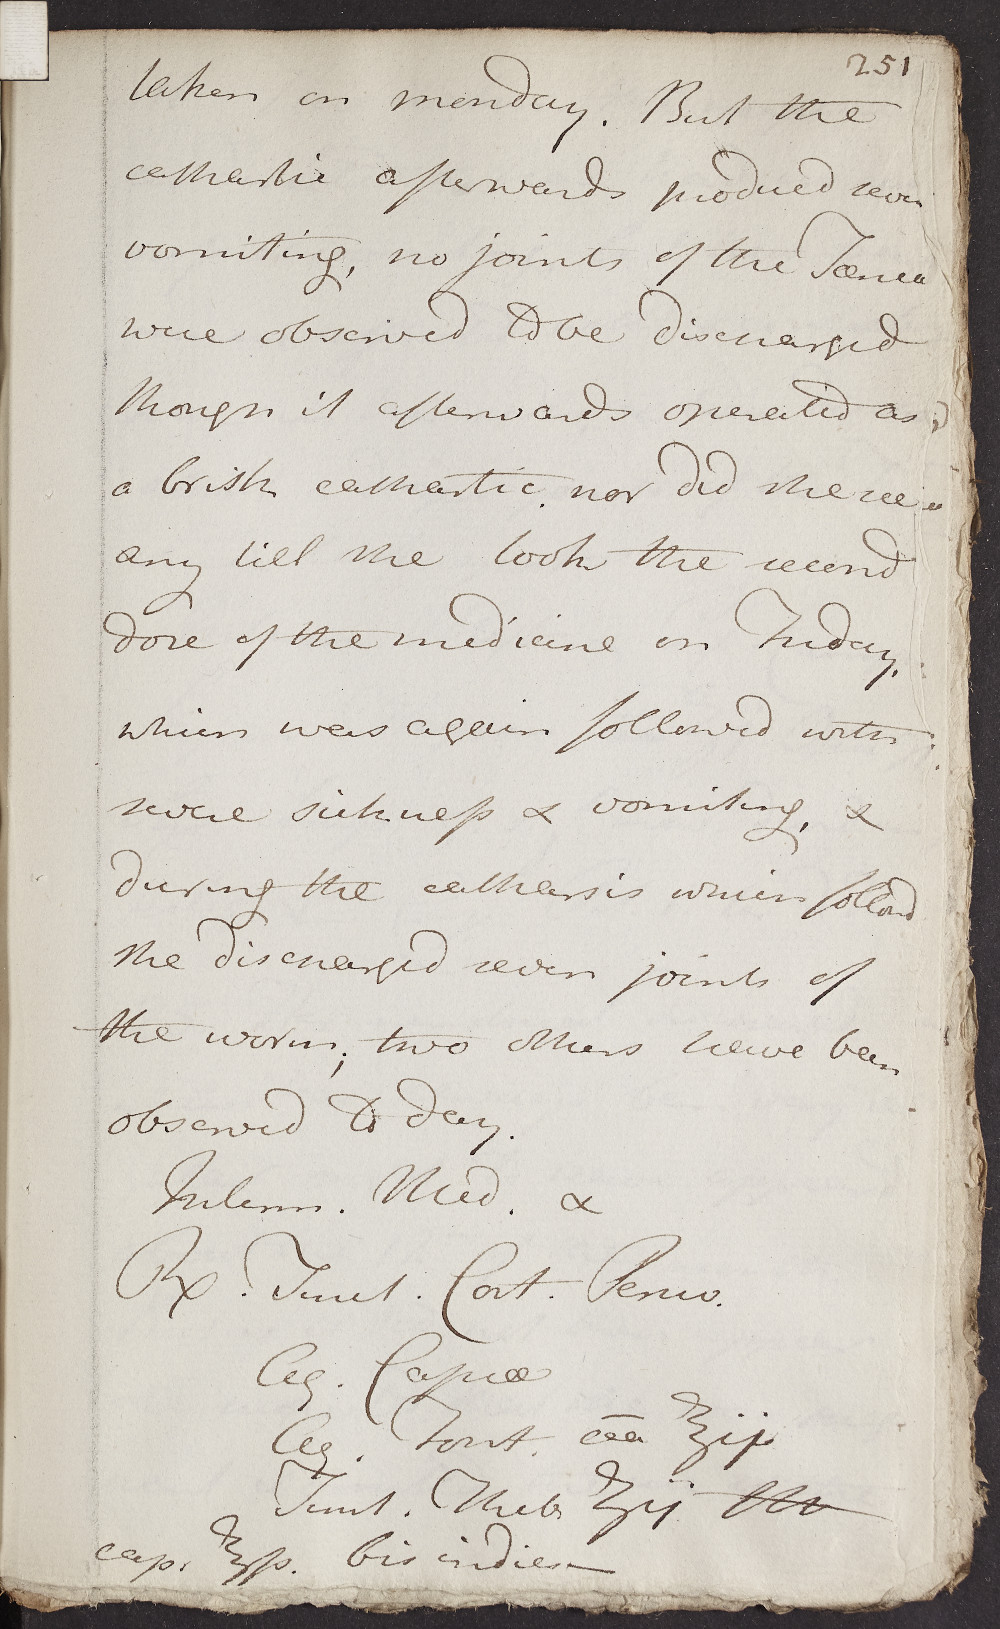 251
taken on monday. But the
cathartic afterwards produced seven
vomiting, no joints of the Tænea
were observed to be discharged
though it afterwards operated as
a brisk cathartic. nor did she see
any till she took the second
dose of the medicine on Friday,
which was again followed with
severe sickness & vomiting, &
during the catharsis which follow'd
she discharged seven joints of
the worm; two others have been
observed to day.
Interm. Med. &
Rx. Tinct. Cort. Peruv.
Aq. Font. āā ℥ij
Tinct. Theb. ʒij
cap. ℥ſs. bis indies